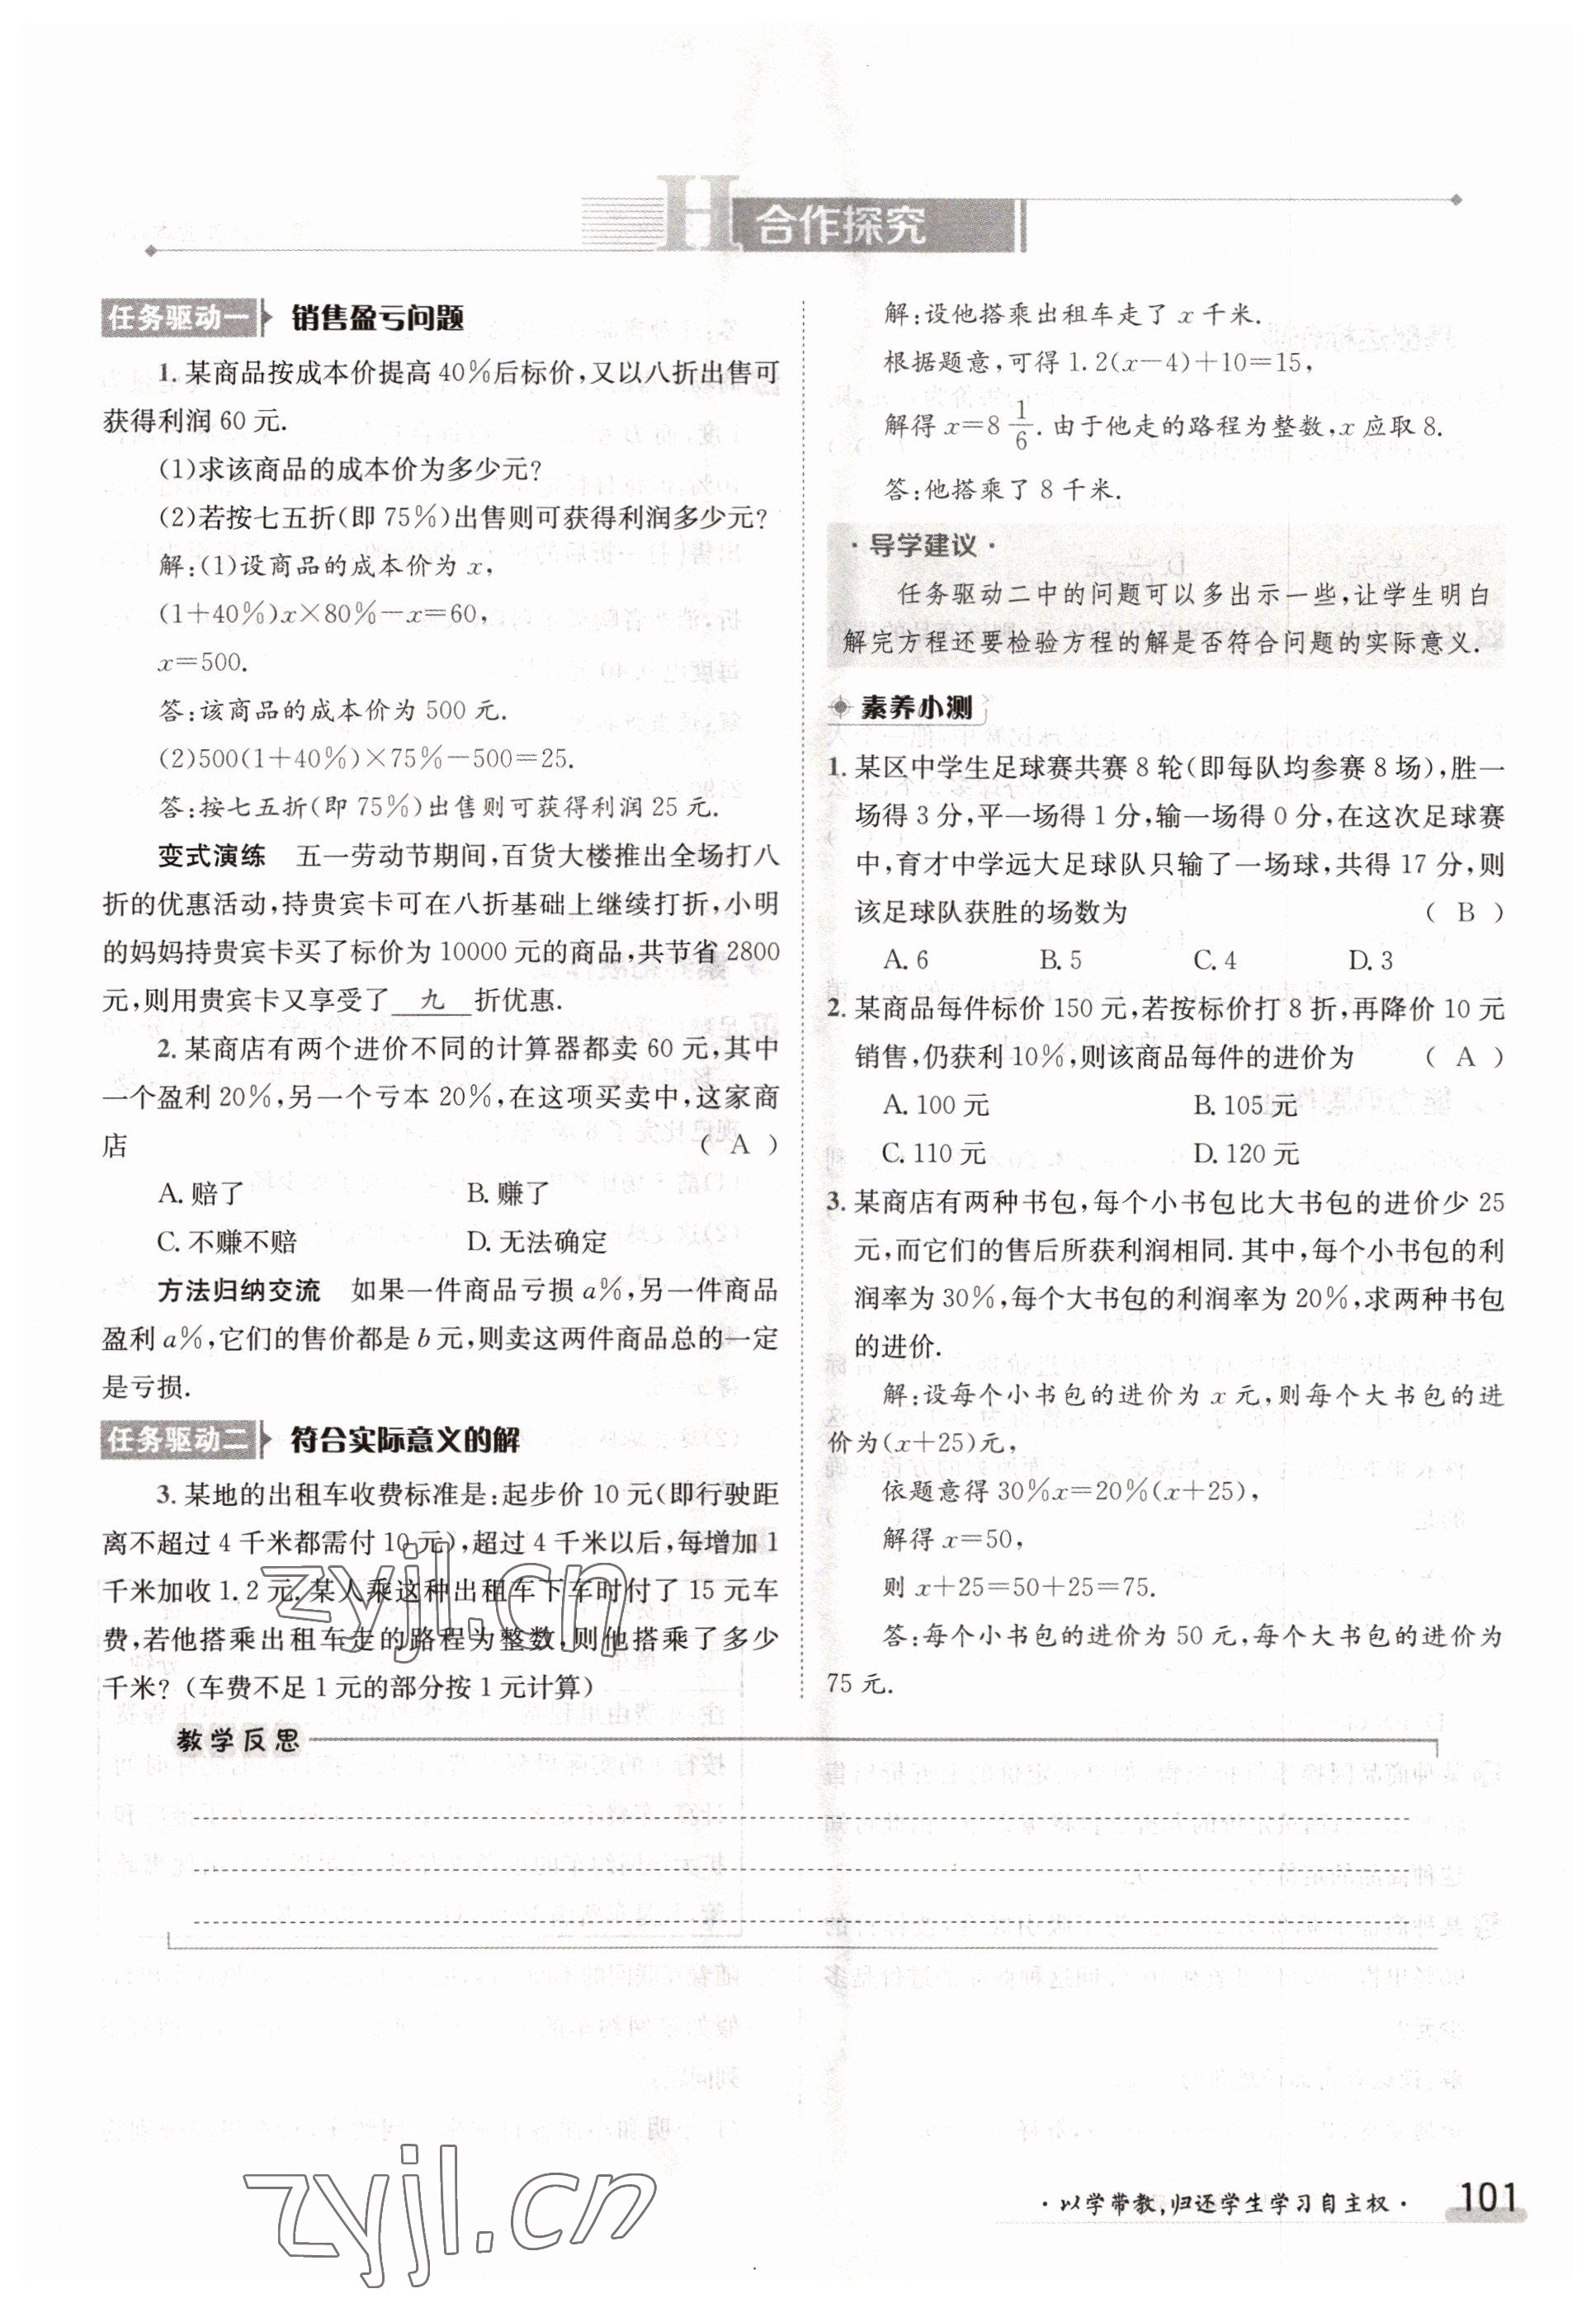 H 合作探究
任务驱动一 销售盈亏问题
1. 某商品按成本价提高40%后标价,又以八折出售可
获得利润60元.
(1)求该商品的成本价为多少元?
(2)若按七五折(即75%)出售则可获得利润多少元?
解:(1)设商品的成本价为x,
(1+40%)x×80%-x=60,
x=500.
答:该商品的成本价为500元.
(2)500(1+40%)×75%-500=25.
答:按七五折(即75%)出售则可获得利润25元.
变式演练 五一劳动节期间,百货大楼推出全场打八
折的优惠活动,持贵宾卡可在八折基础上继续打折,小明
的妈妈持贵宾卡买了标价为10000元的商品,共节省2800
元,则用贵宾卡又享受了 九 折优惠.
2. 某商店有两个进价不同的计算器都卖60元,其中
一个盈利20%,另一个亏本20%,在这项买卖中,这家商
店 ( A )
A. 赔了 B. 赚了
C. 不赚不赔 D. 无法确定
方法归纳交流 如果一件商品亏损a%,另一件商品
盈利a%,它们的售价都是b元,则卖这两件商品总的一定
是亏损.
任务驱动二 符合实际意义的解
3. 某地的出租车收费标准是:起步价10元(即行驶距
离不超过4千米都需付10元),超过4千米以后,每增加1
千米加收1.2元.某人乘这种出租车下车时付了15元车
费,若他搭乘出租车走的路程为整数,则他搭乘了多少
千米?(车费不足1元的部分按1元计算)
解:设他搭乘出租车走了x千米.
根据题意,可得1.2(x-4)+10=15,
解得x=8 1/6.由于他走的路程为整数,x应取8.
答:他搭乘了8千米.
·导学建议·
任务驱动二中的问题可以多出示一些,让学生明白
解完方程还要检验方程的解是否符合问题的实际意义.
素养小测
1. 某区中学生足球赛共赛8轮(即每队均参赛8场),胜一
场得3分,平一场得1分,输一场得0分,在这次足球赛
中,育才中学远大足球队只输了一场球,共得17分,则
该足球队获胜的场数为 ( B )
A. 6 B. 5 C. 4 D. 3
2. 某商品每件标价150元,若按标价打8折,再降价10元
销售,仍获利10%,则该商品每件的进价为 ( A )
A. 100元 B. 105元
C. 110元 D. 120元
3. 某商店有两种书包,每个小书包比大书包的进价少25
元,而它们的售后所获利润相同.其中,每个小书包的利
润率为30%,每个大书包的利润率为20%,求两种书包
的进价.
解:设每个小书包的进价为x元,则每个大书包的进
价为(x+25)元,
依题意得30%x=20%(x+25),
解得x=50,
则x+25=50+25=75.
答:每个小书包的进价为50元,每个大书包的进价为
75元.
教学反思
zyjl.cn
zyjl.cn
·以学带教,归还学生学习自主权· 101